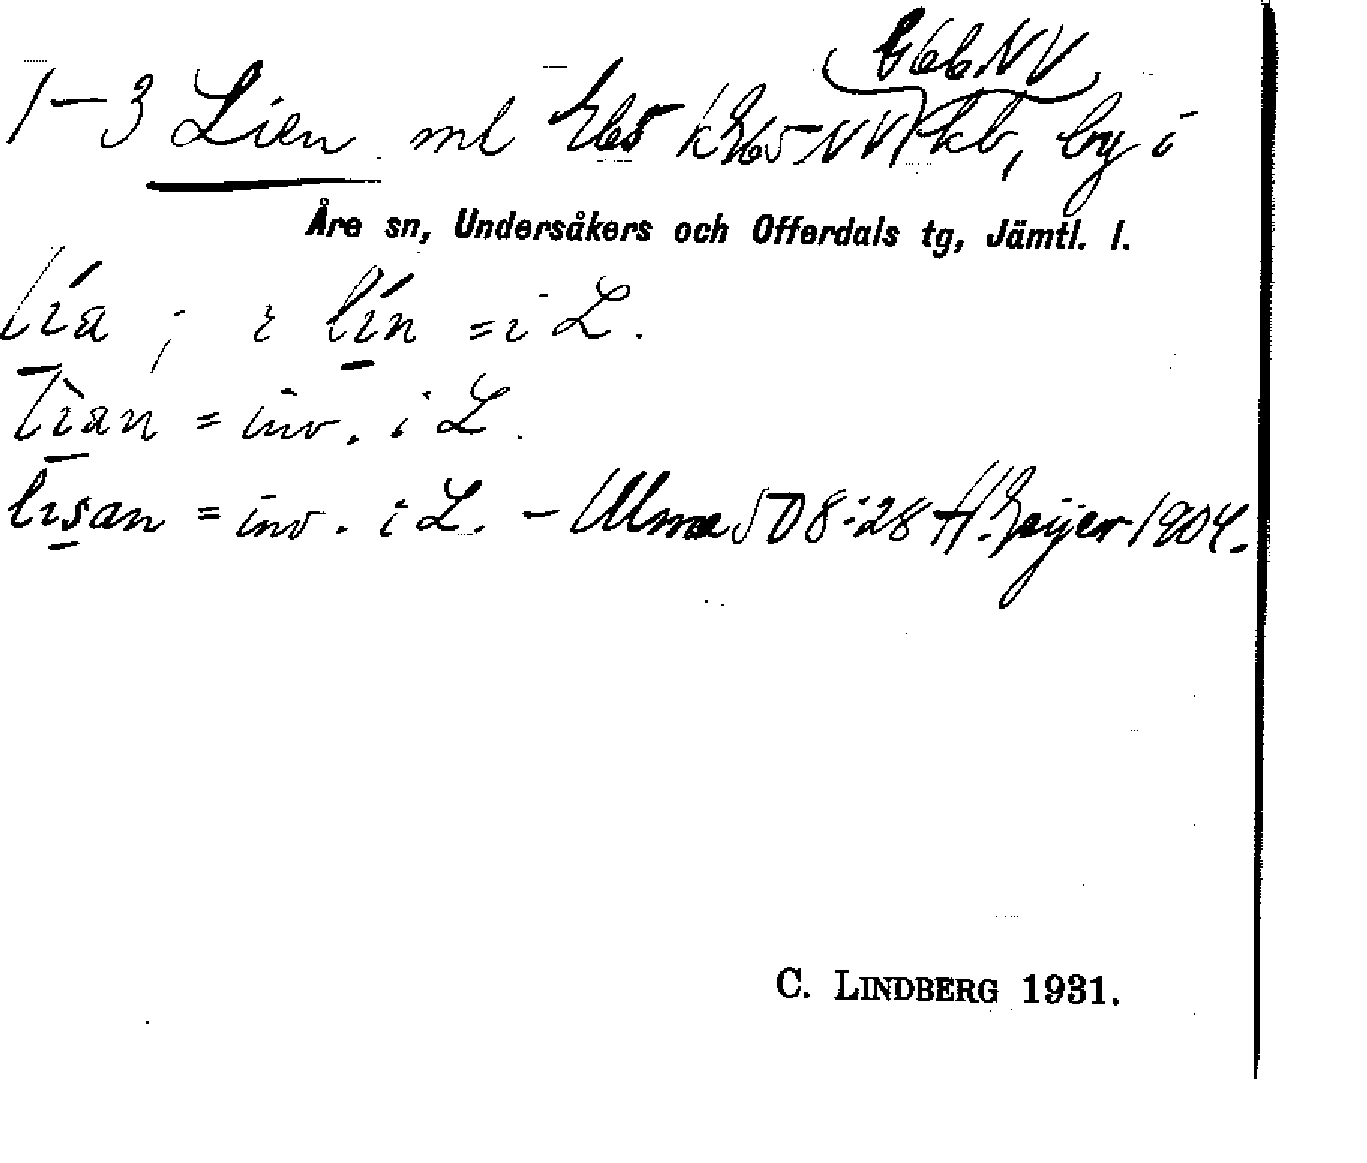 1-3 Lien ml kb, by i
Åre sn, Undersåkers och Offerdals tg, Jämtl. l.
lía ; ı lín = i L.
lìan = inv. i L.
lısan = inv. i L. - Ulma 508:28 H. Geijer 1904.
C. LINDBERG 1931.